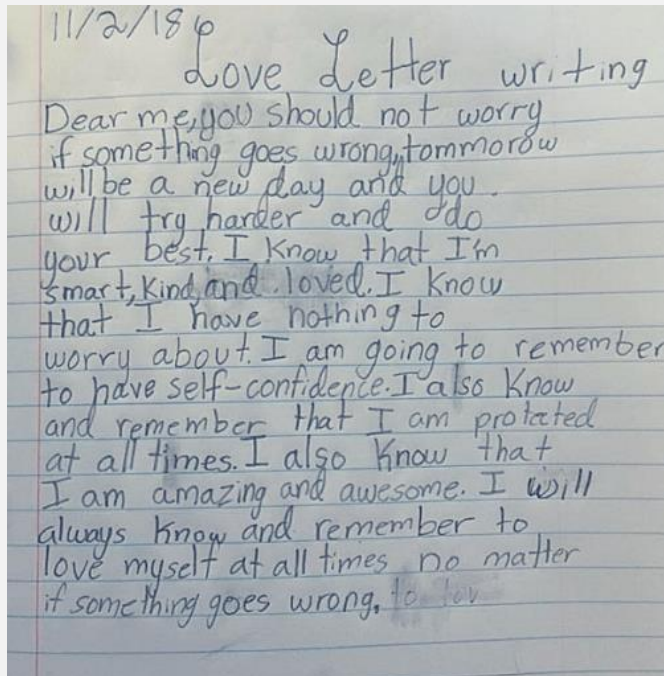 11/2/18
Love Letter writing
Dear me, you should not worry
if something goes wrong, tommorow
will be a new day and you
will try harder and do
your best. I know that I'm
smart, kind, and loved. I know
that I have nothing to
worry about. I am going to remember
to have self-confidence. I also know
and remember that I am protected
at all times. I also know that
I am amazing and awesome. I will
always know and remember to
love myself at all times no matter
if something goes wrong.